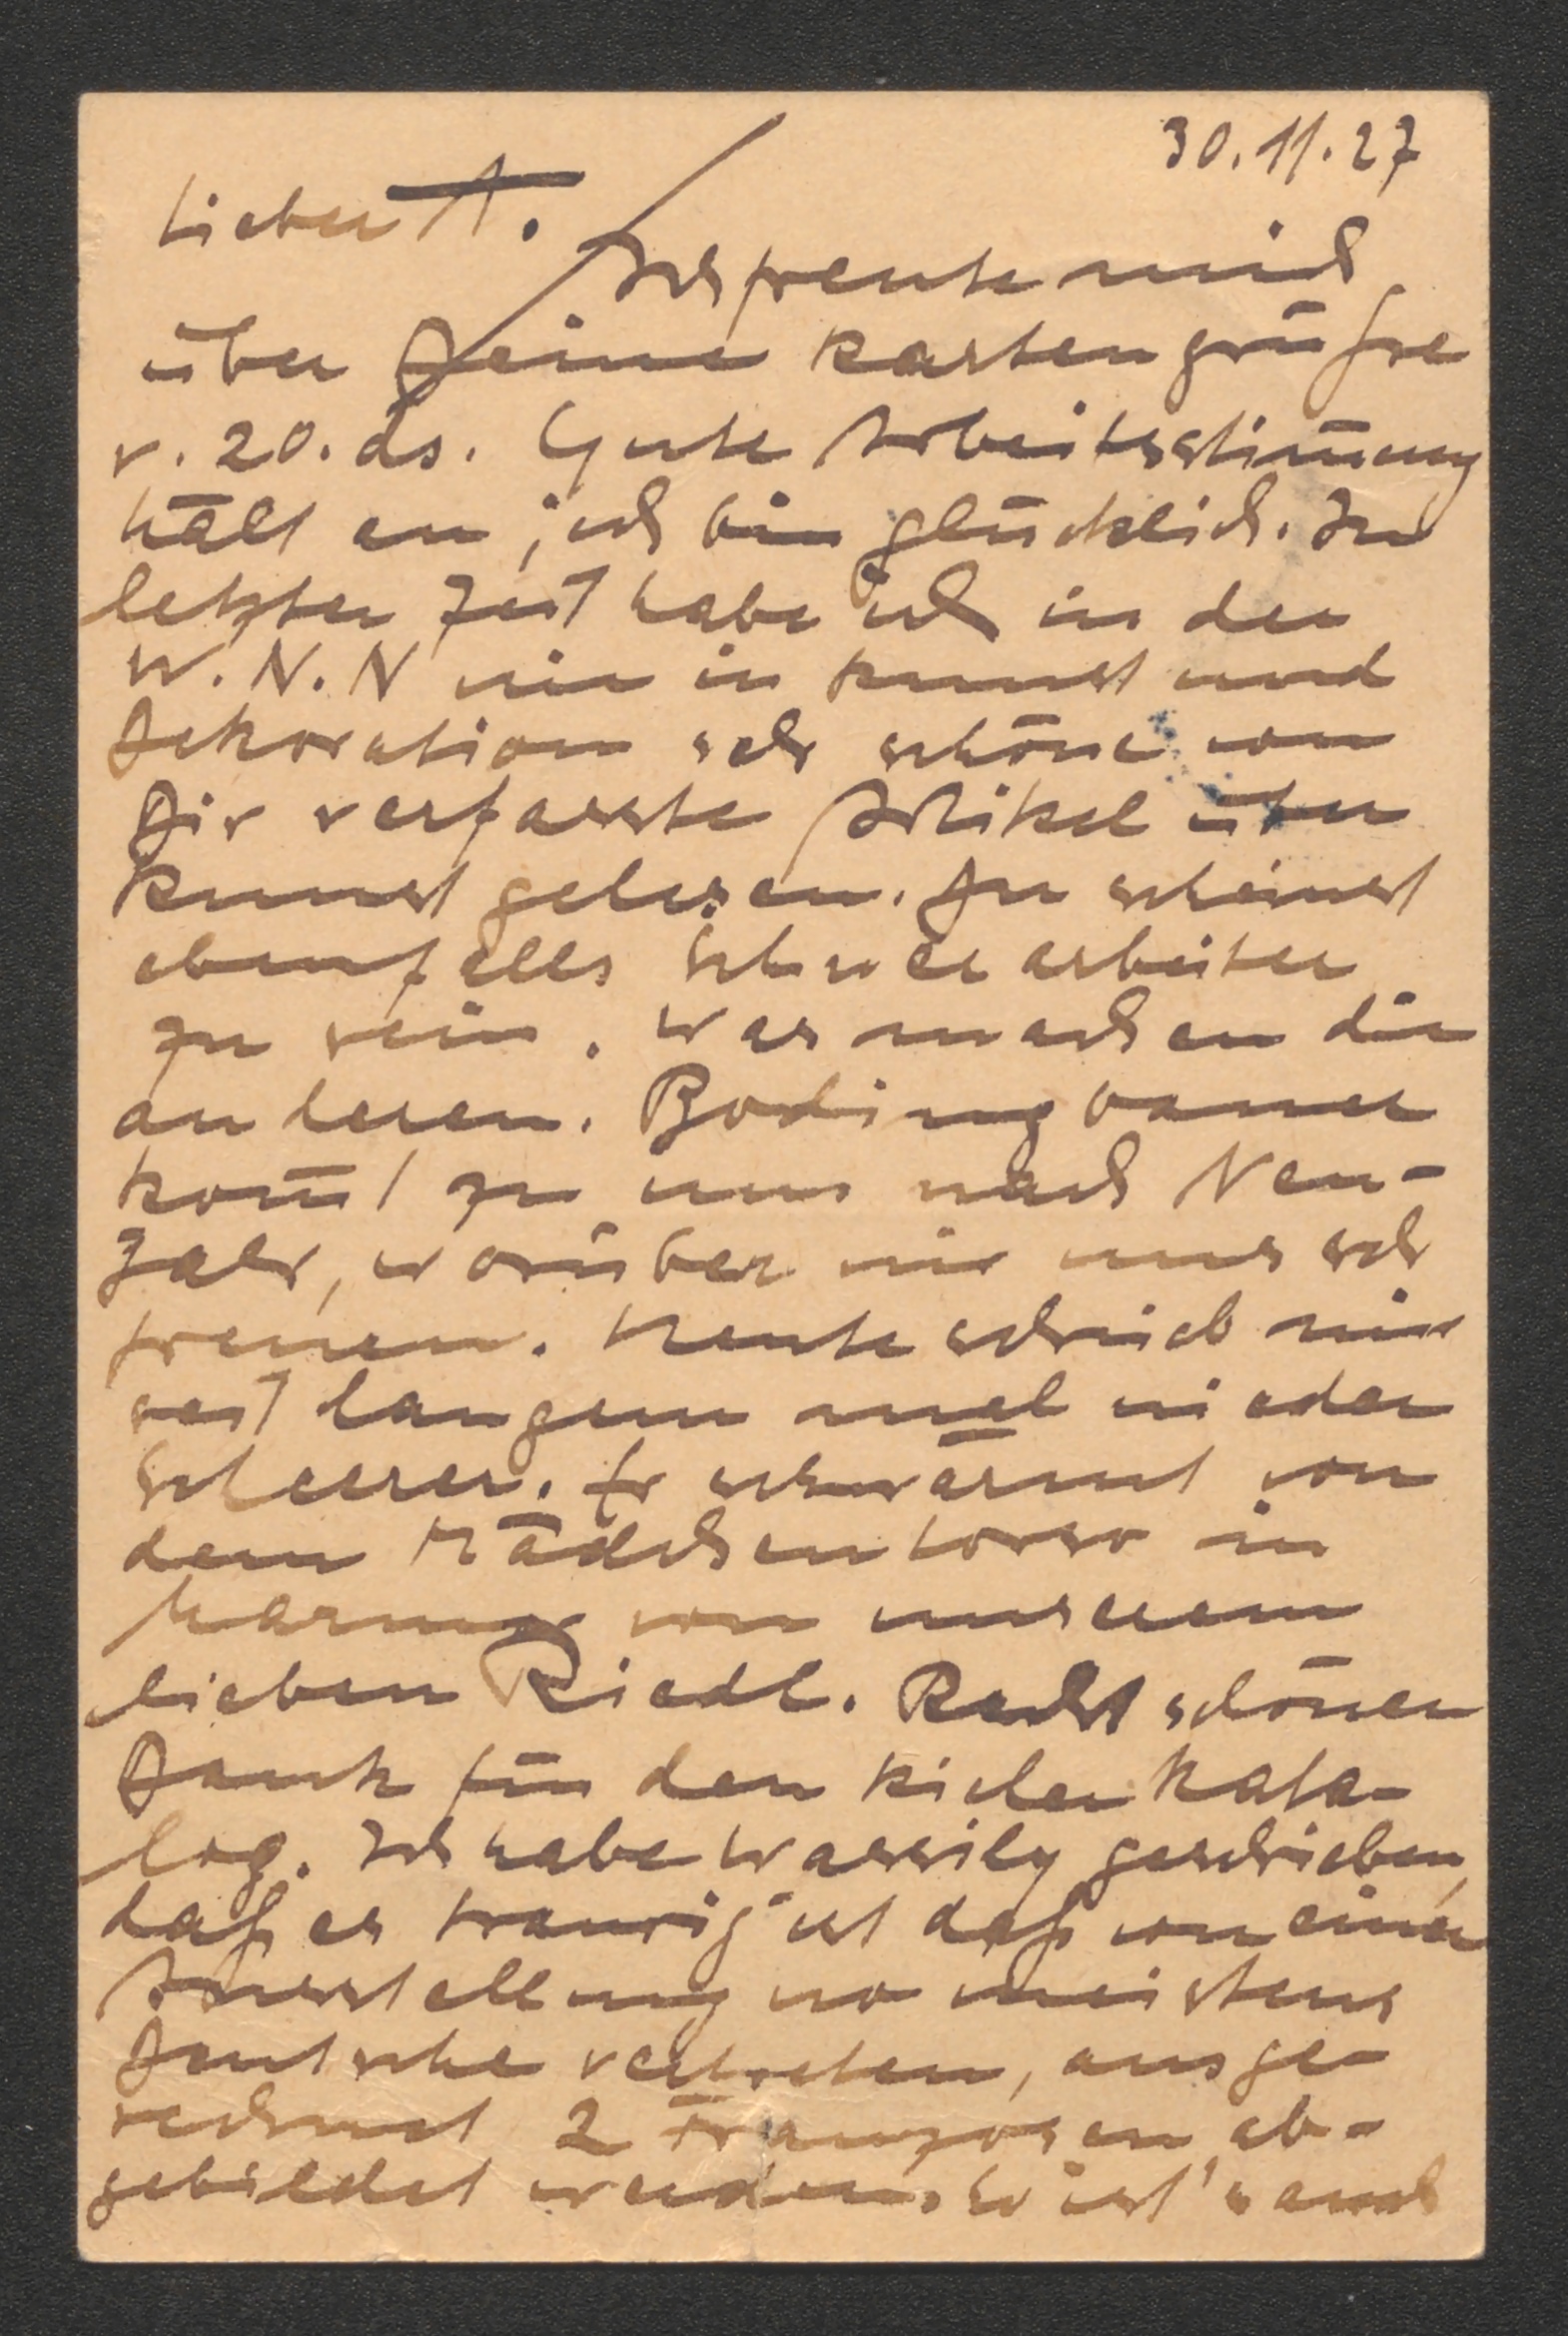 30.11.27
Lieber A.
Ich freute mich
über Deine Kartengrüsse
v. 20. ds. Gute Arbeitsstim̄ung
hält an, ich bin glücklich. In
letzter Zeit habe ich in der
W.N.N wie in Kunst und
Dekoration sehr schöne von
Dir verfasste Artikel über
Kunst gelesen. Du scheinst
ebenfalls Schwerarbeiter
zu sein. Was machen die
anderen.
kom̄t zu uns nach Neu-
Jahr, worüber wir uns sehr
freuen. Heute schrieb mir
seit langem mal wieder
Scheerer. Er schwärmt von
dem Mädchentorso in
Marmor von unserem
lieben Riedl. Recht schönen
Dank für den Kieler Kata-
log. Ich habe Wassily geschrieben,
daß es traurig ist daß von einer
Ausstellung wo meistens
Deutsche vertreten, ausge-
rechnet 2 Franzosen ab-
gebildet werden. So ist's auch